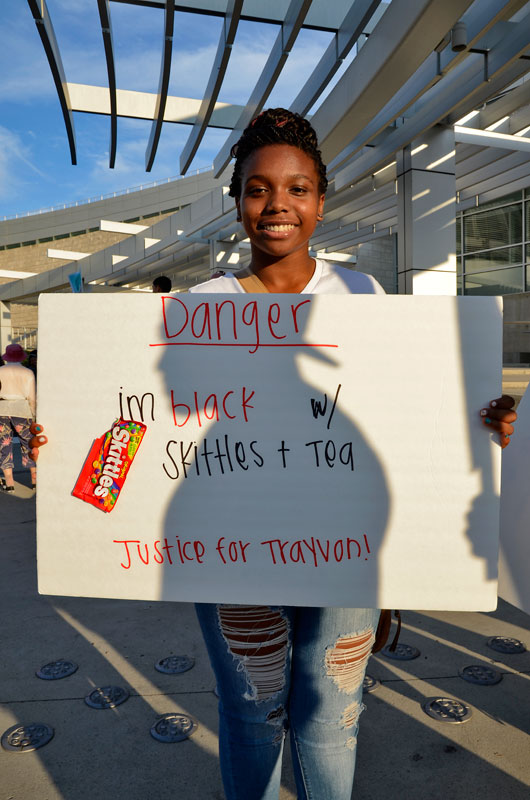 Danger
im black w/
Skittles
Skittles + Tea
Justice for Trayvon!